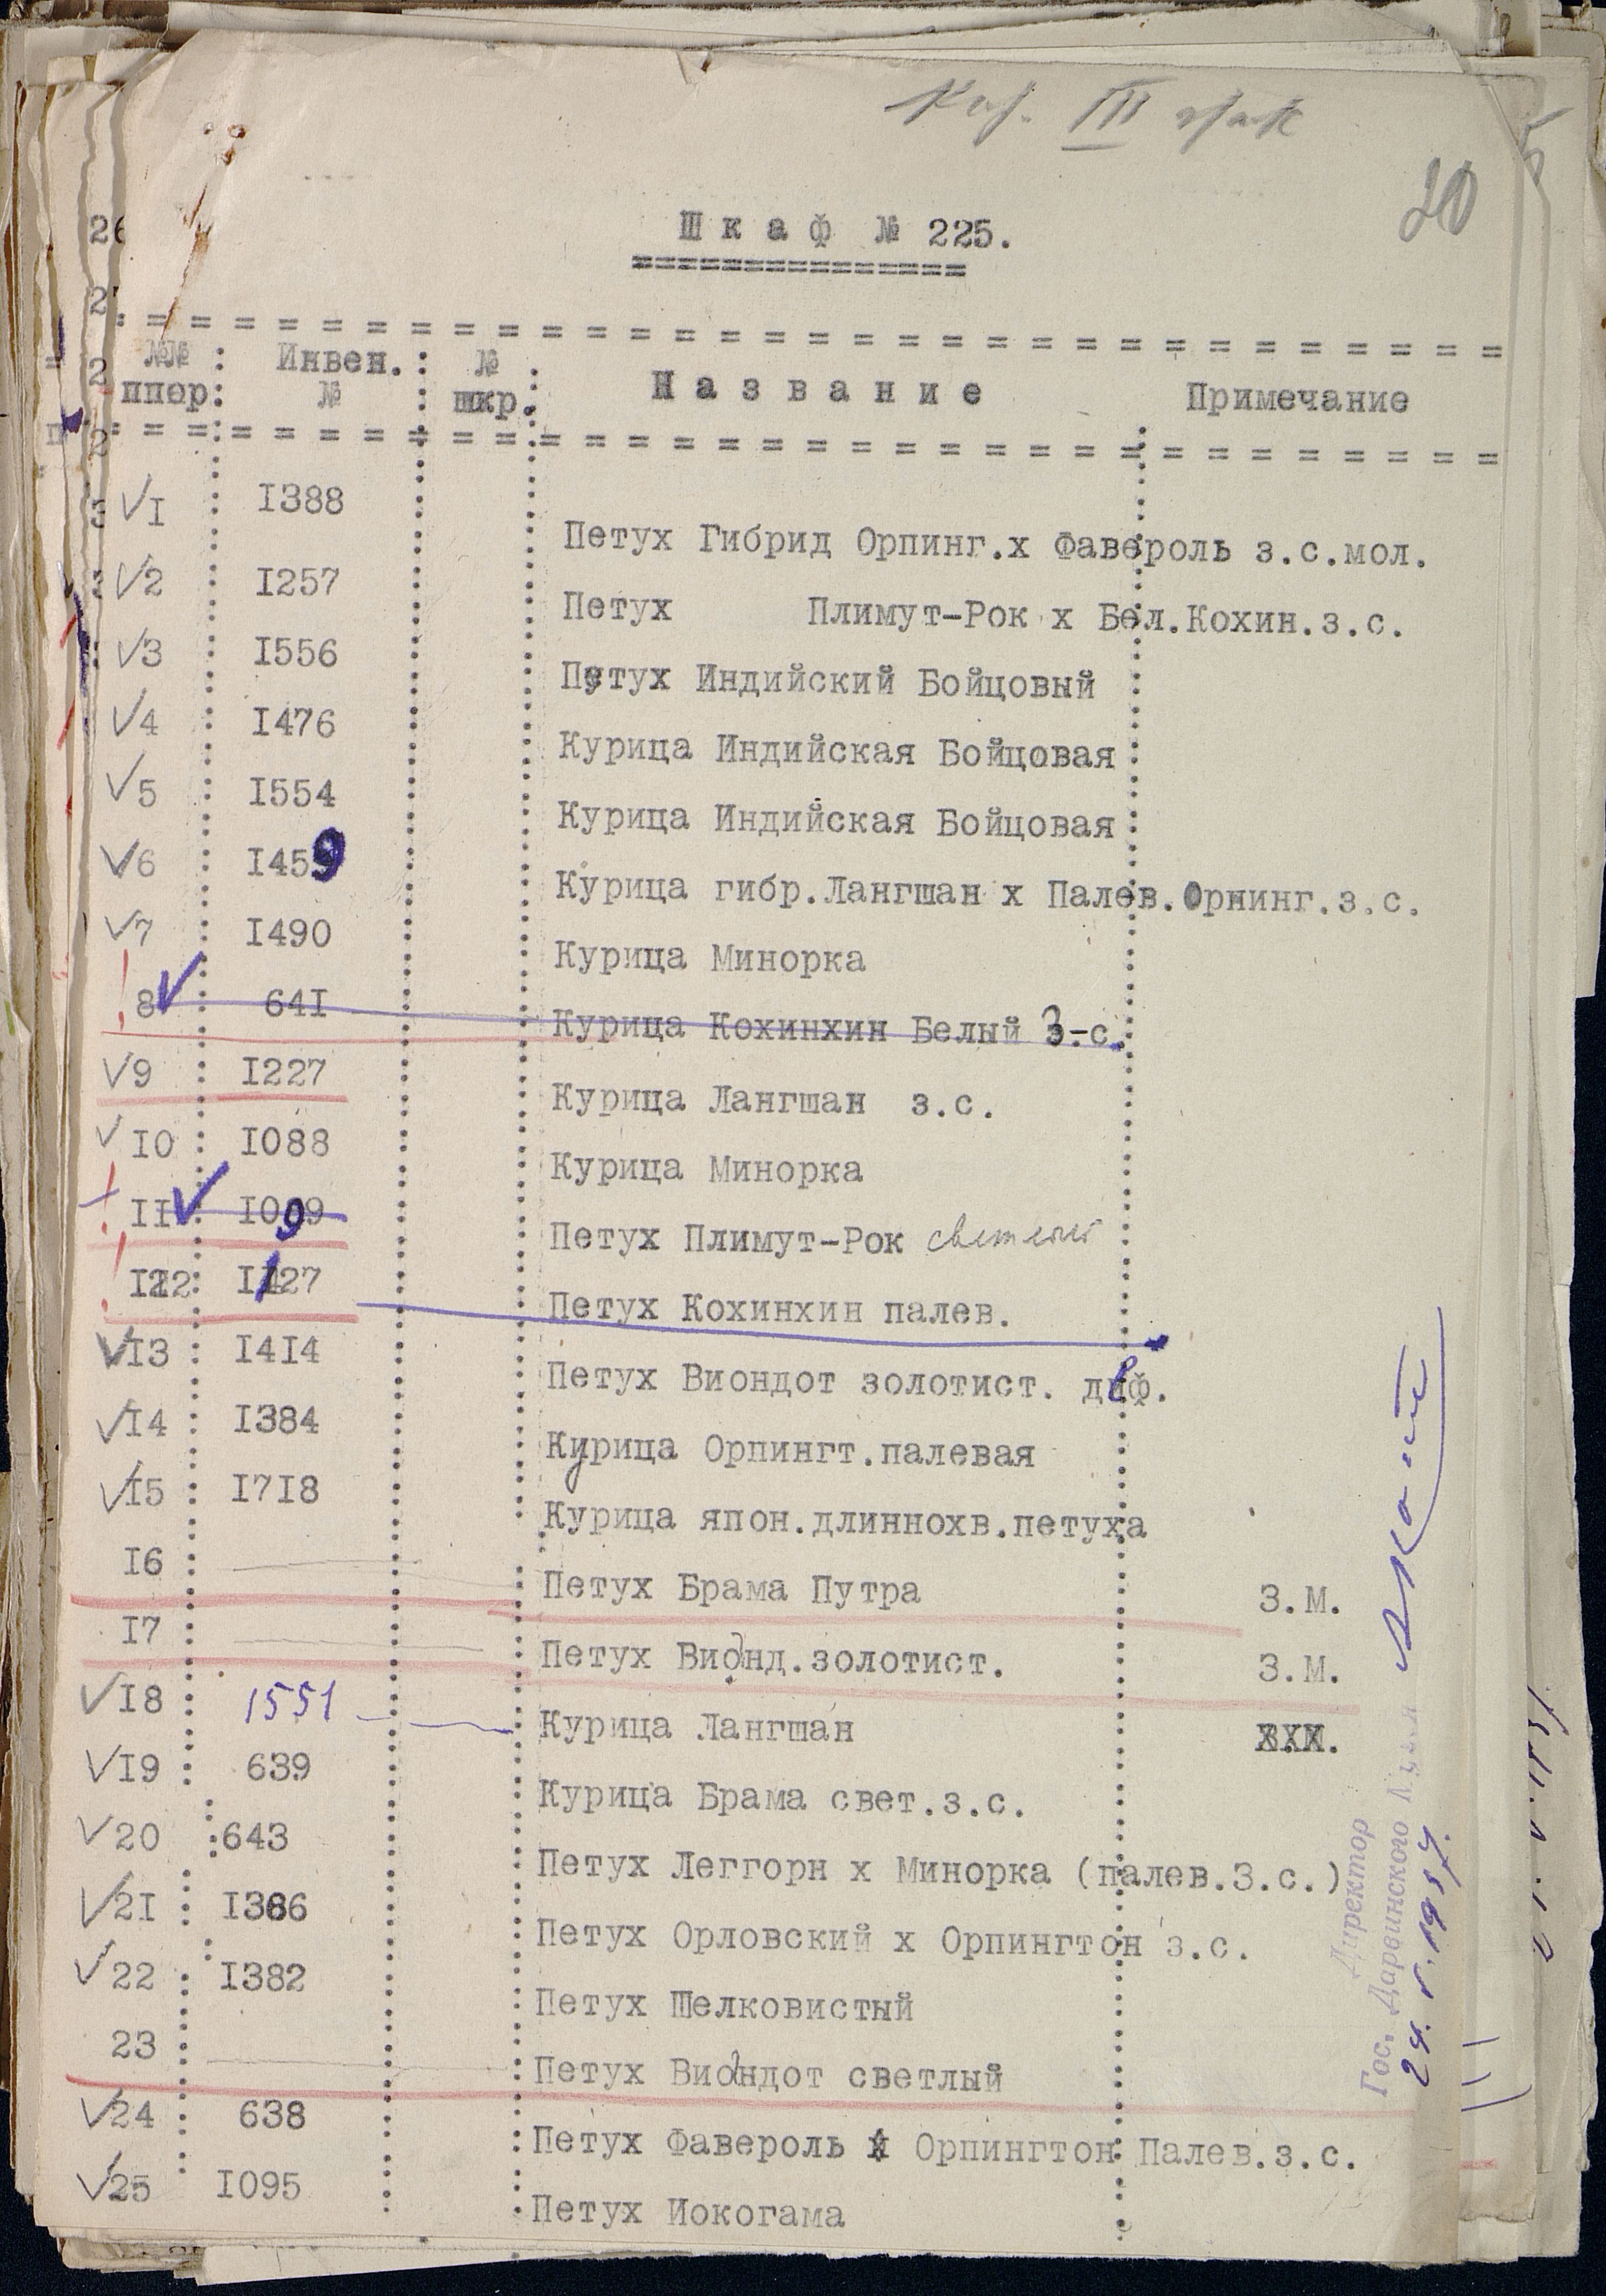 III
20
Шкаф № 225.
№№ ппор. Инвен. № № шкр. Название Примечание
1 1388 Петух Гибрид Орпинг.х Фавероль з.с.мол.
2 1257 Петух Плимут-Рок х Бел.Кохин.з.с.
3 1556 Петух Индийский Бойцовый
4 1476 Курица Индийская Бойцовая
5 1554 Курица Индийская Бойцовая
6 1459 Курица гибр.Лангшан х Палев.Орпинг.з.с.
7 1490 Курица Минорка
8 641 Курица Кохинхин Белый З.-с.
9 1227 Курица Лангшан з.с.
10 1088 Курица Минорка
11 1099 Петух Плимут-Рок светлый
12 1127 Петух Кохинхин палев.
13 1414 Петух Виондот золотист. деф.
14 1384 Курица Орпингт.палевая
15 1718 Курица япон.длиннохв.петуха
16 Петух Брама Путра З.М.
17 Петух Вианд.золотист. З.М.
18 1551 Курица Лангшан XXX.
19 639 Курица Брама свет.з.с.
20 643 Петух Леггорн х Минорка (палев.З.с.)
21 1386 Петух Орловский х Орпингтон з.с.
22 1382 Петух Шелковистый
23 Петух Виандот светлый
24 638 Петух Фавероль х Орпингтон Палев.з.с.
25 1095 Петух Иокогама
Директор
Гос. Дарвинского Музея
24.V.1957.